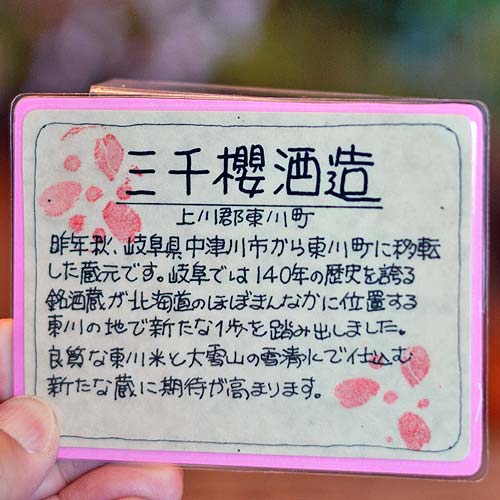 三千櫻酒造
上川郡東川町
昨年秋、岐阜県中津川市から東川町に移転
した蔵元です。岐阜では140年の歴史を誇る
銘酒蔵が北海道のほぼまんなかに位置する
東川の地で新たな1歩を踏み出しました。
良質な東川米と大雪山の雪清水で仕込む
新たな蔵に期待が高まります。